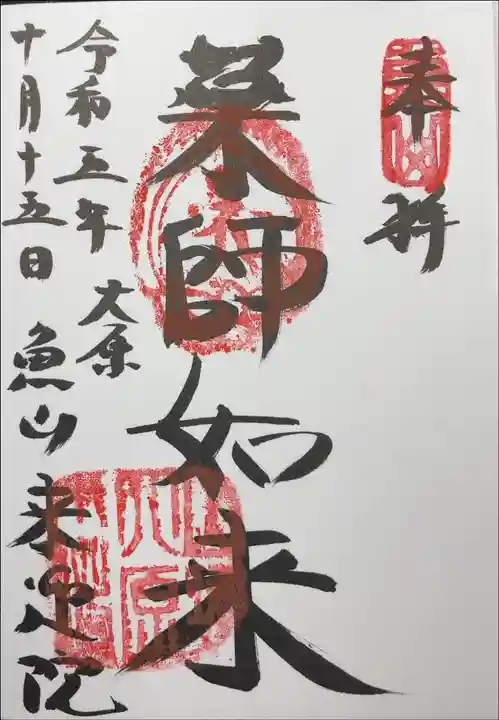 奉拝
薬師如来
大原
魚山来迎院
令和五年
十月十五日